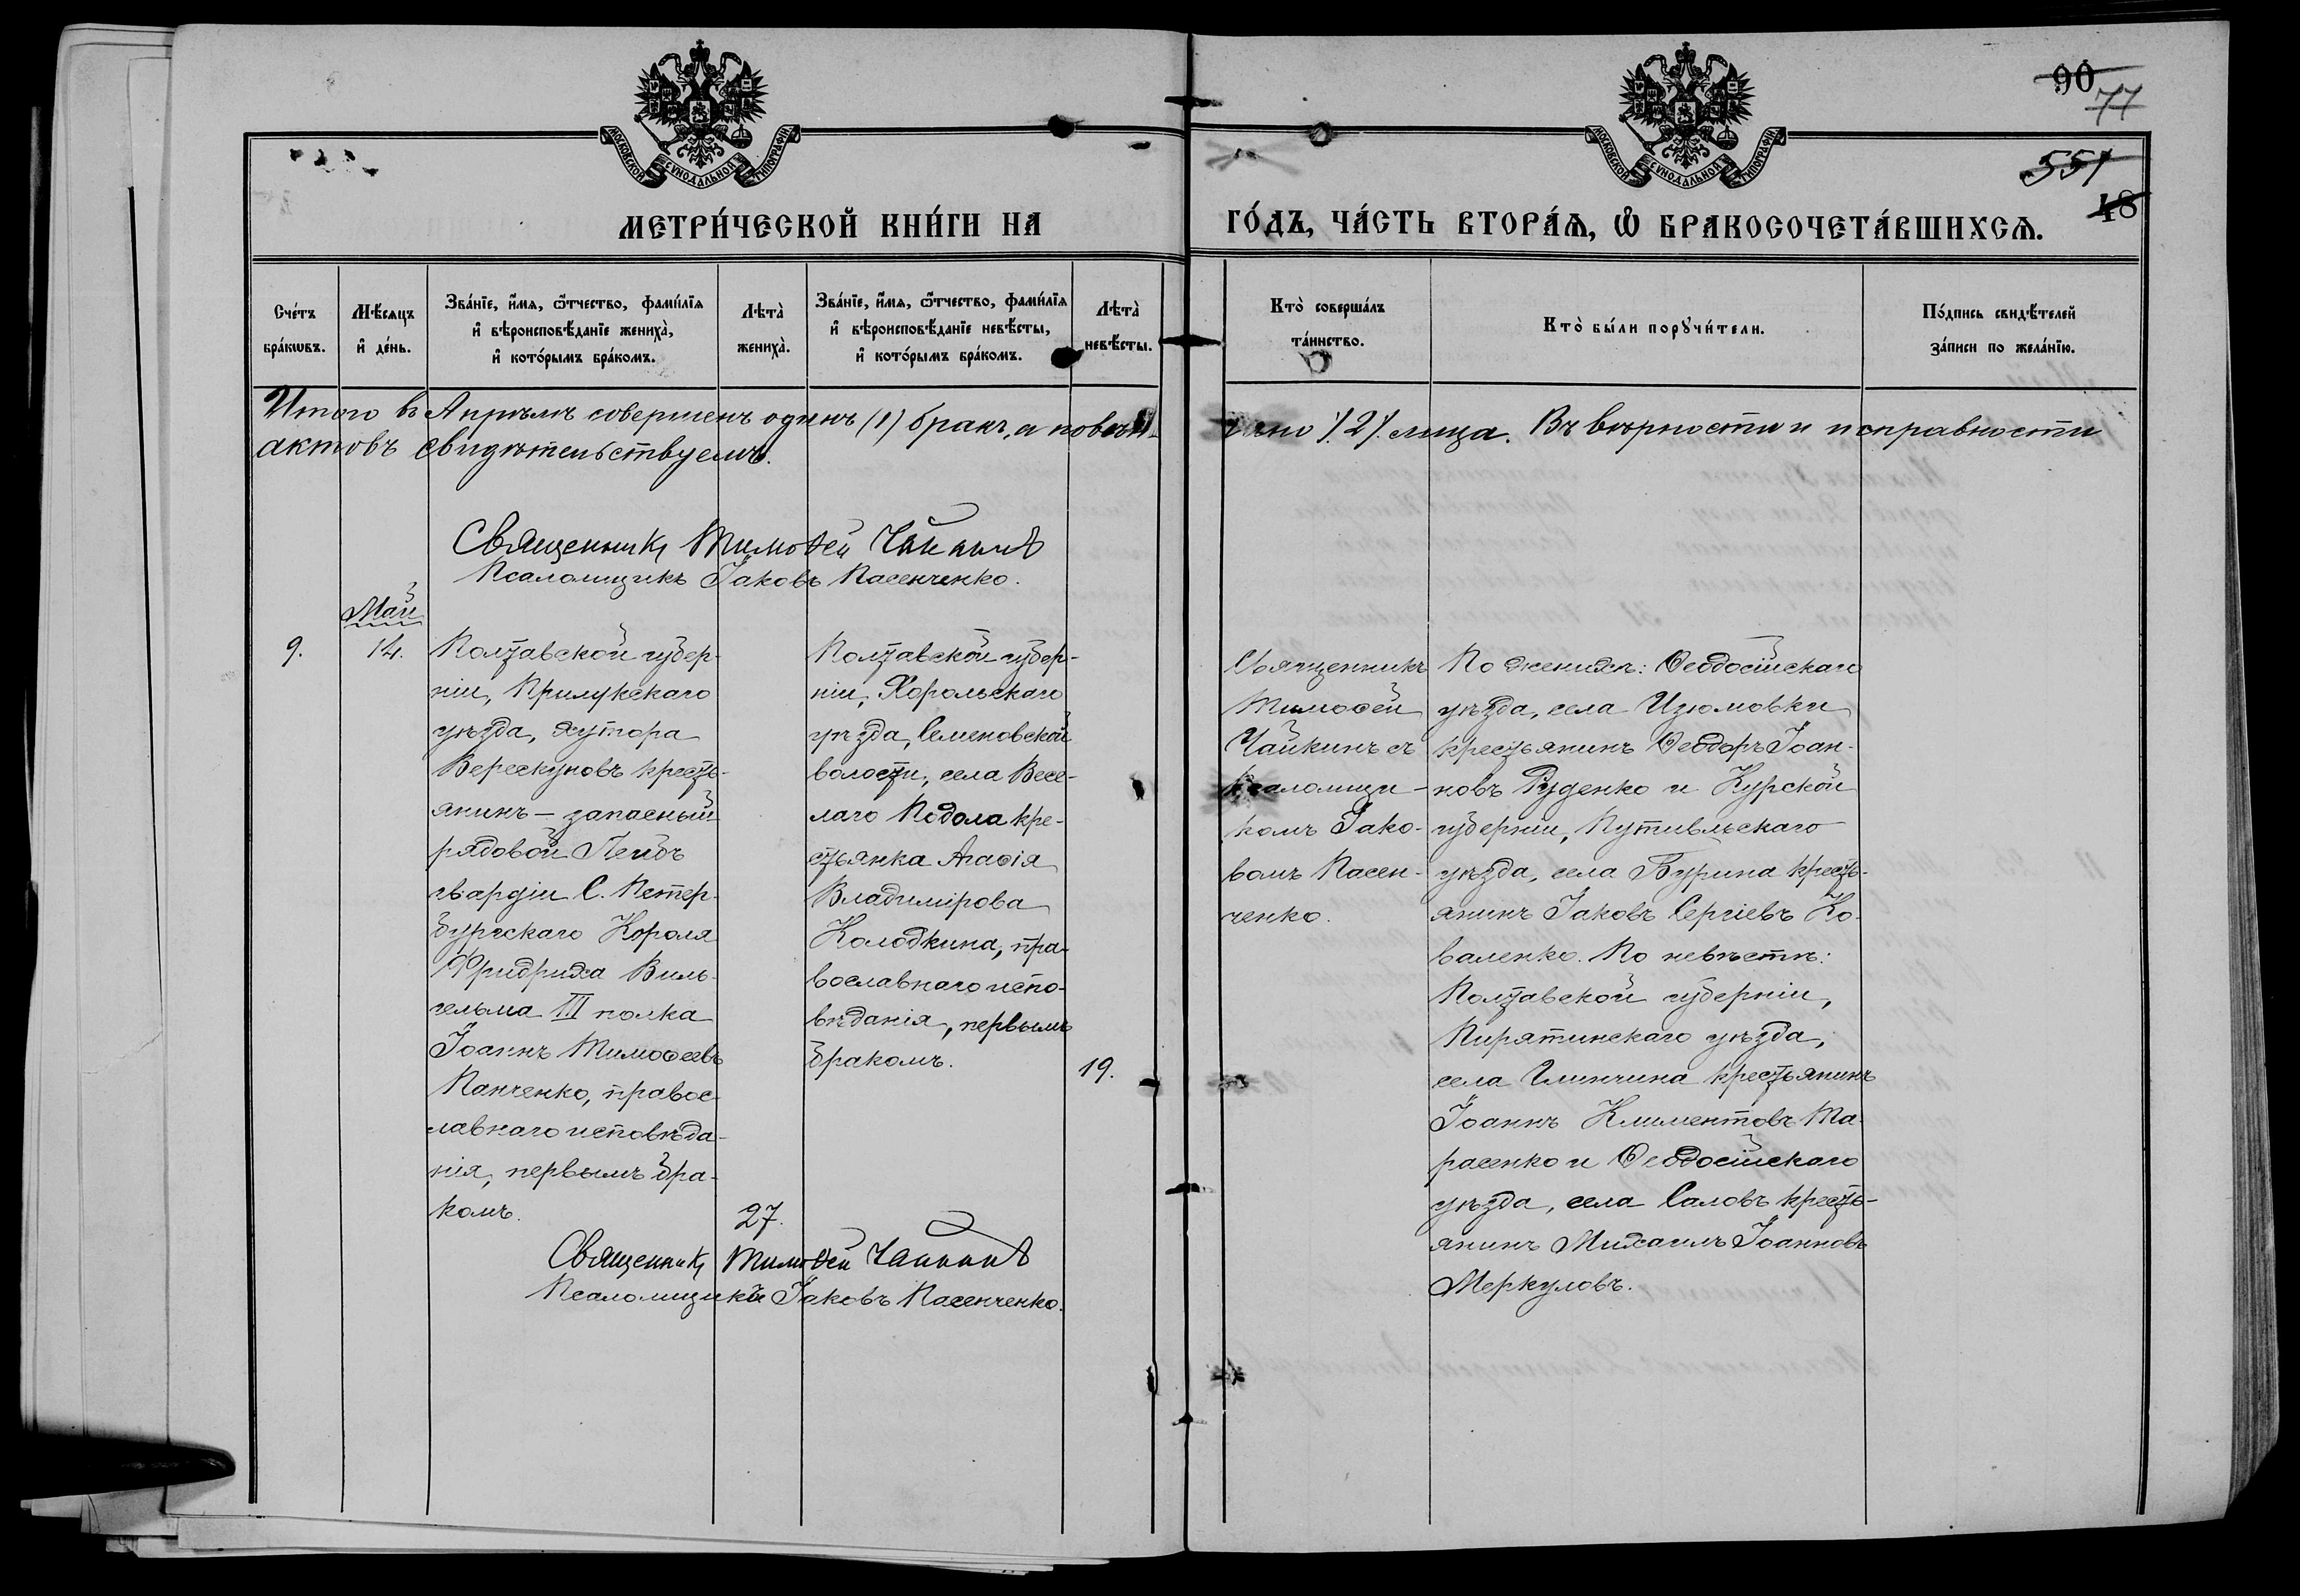 90
77
551
48
МОСКОВСКОЙ СѴНОДАЛЬНОЙ ТИПОГРАФІИ
МОСКОВСКОЙ СѴНОДАЛЬНОЙ ТИПОГРАФІИ
МЕТРИ́ЧЕСКОЙ КНИ́ГИ НА ГО́ДЪ, ЧА́СТЬ ВТОРА́Ѧ, Ѽ БРАКОСОЧЕТА́ВШИХСѦ.
Сче́тъ
бра́кѡвъ.
Мѣ́сяцъ
и҆ де́нь.
Зва́нїе, и҆́мѧ, ѻ҆́тчество, фами́лїѧ
и҆ вѣроисповѣ́данїе жениха̀,
и҆ кото́рымъ бра́комъ.
Лѣта̀
жениха̀.
Зва́нїе, и҆́мѧ, ѻ҆́тчество, фами́лїѧ
и҆ вѣроисповѣ́данїе невѣ́сты,
и҆ кото́рымъ бра́комъ.
Лѣта̀
невѣ́сты.
Кто̀ соверша́лъ
та́инство.
Кто̀ бы́ли порꙋчи́тели.
По́дпись свидѣ́телей
за́писи по жела́нїю.
Итого въ Апрѣлѣ совершенъ одинъ (1) бракъ, а повѣн-
чано /2/ лица. Въ вѣрности и исправности
актовъ свидѣтельствуемъ.
Священникъ Тимоѳей Чайкинъ
Псаломщикъ Іаковъ Пасенченко.
Май
9.
14.
Полтавской губер-
ніи, Прилукскаго
уѣзда, хутора
Верескуновъ кресть-
янинъ – запасный
рядовой Лейбъ
гвардіи С. Петер-
бургскаго Короля
Фридриха Виль-
гельма III полка
Іоаннъ Тимоѳеевъ
Панченко, правос-
лавнаго исповѣда-
нія, первымъ бра-
комъ.
27.
Полтавской губер-
ніи, Хорольскаго
уѣзда, Семеновской
волости, села Весе-
лаго Подола кре-
стьянка Агаѳія
Владимірова
Колодкина, пра-
вославнаго испо-
вѣданія, первымъ
бракомъ.
19.
Священникъ
Тимоѳей
Чайкинъ съ
псаломщи-
комъ Іако-
вомъ Пасен-
ченко.
По женихѣ: Ѳеодосійскаго
уѣзда, села Изюмовки
крестьянинъ Ѳеодоръ Іоан-
новъ Руденко и Курской
губерніи, Путивльскаго
уѣзда, села Бурина кресть-
янинъ Іаковъ Сергіевъ Ко-
валенко. По невѣстѣ:
Полтавской губерніи,
Пирятинскаго уѣзда,
села крестьянинъ
Іоаннъ Климентовъ Та-
расенко и Ѳеодосійскаго
уѣзда, села Саловъ кресть-
янинъ Михаилъ Іоанновъ
Меркуловъ.
Священникъ Тимоѳей Чайкинъ
Псаломщикъ Іаковъ Пасенченко.